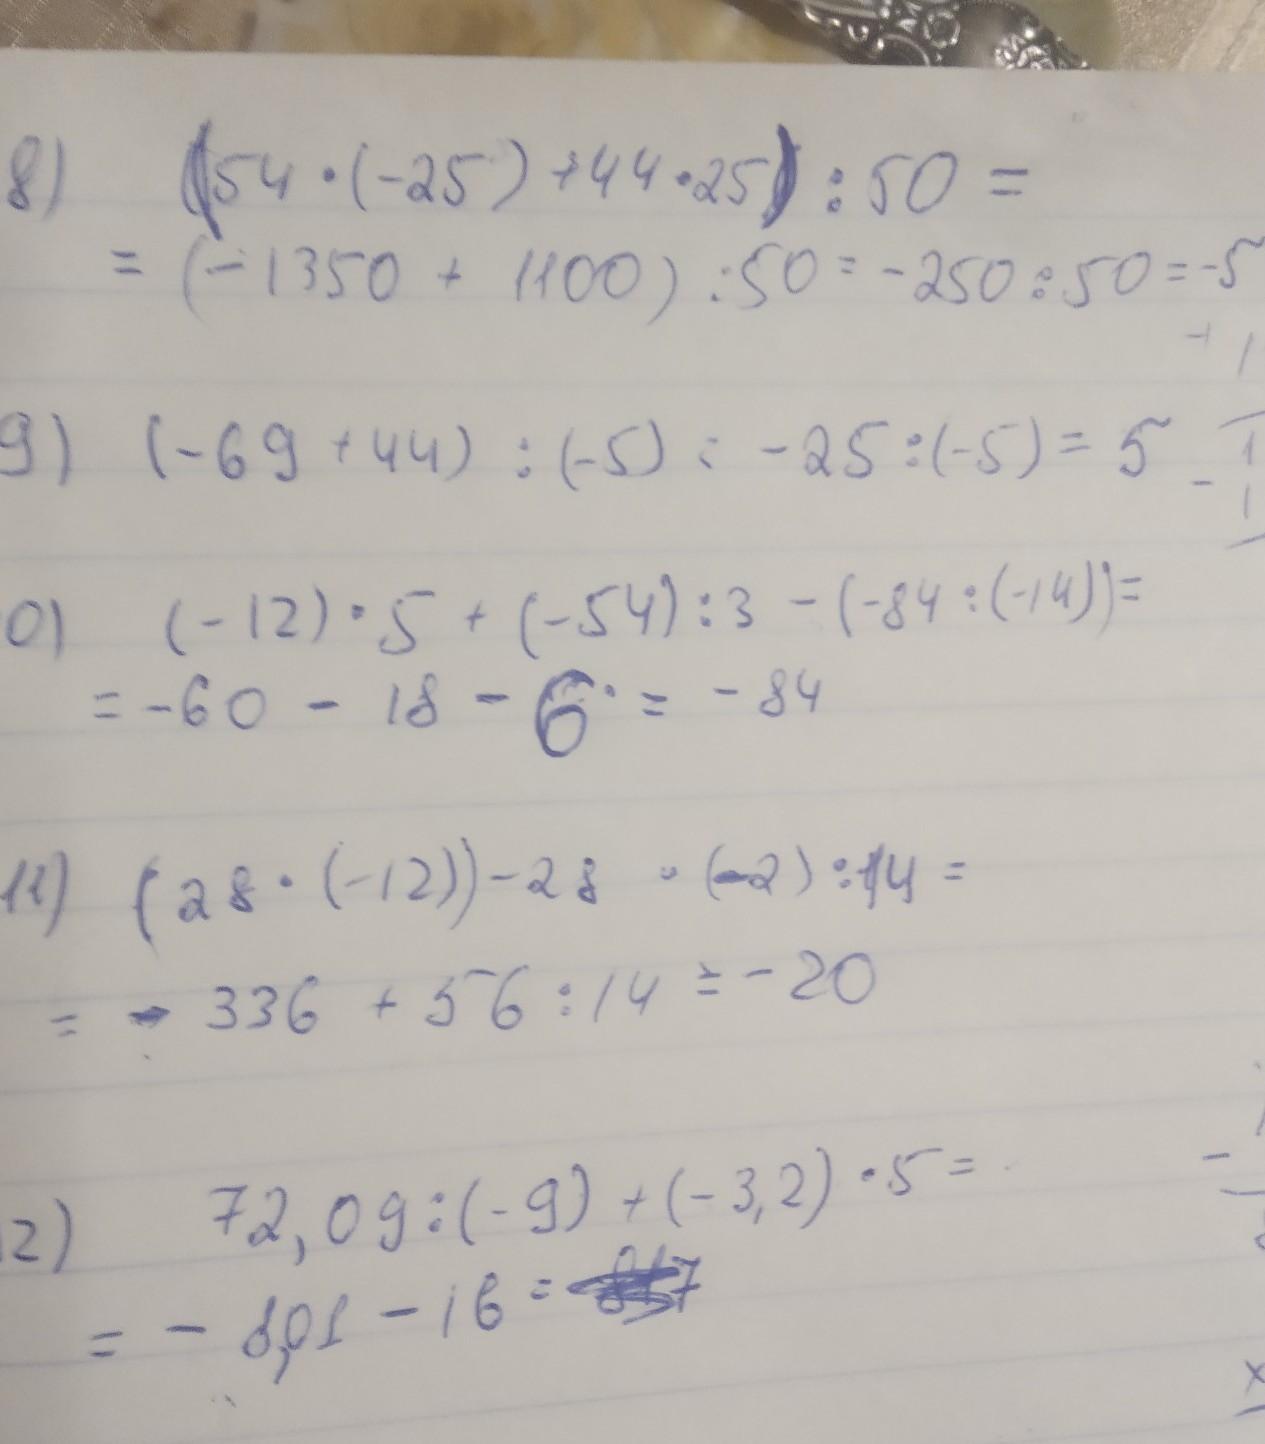 8) (54 · (-25) + 44 · 25) : 50 =
= (-1350 + 1100) : 50 = -250 : 50 = -5
9) (-69 + 44) : (-5) = -25 : (-5) = 5
0) (-12) · 5 + (-54) : 3 - (-84 : (-14)) =
= -60 - 18 - 6 = -84
11) (28 · (-12)) - 28 · (-2) : 14 =
= - 336 + 56 : 14 = -20
2) 72,09 : (-9) + (-3,2) · 5 =
= - 8,01 - 16 =